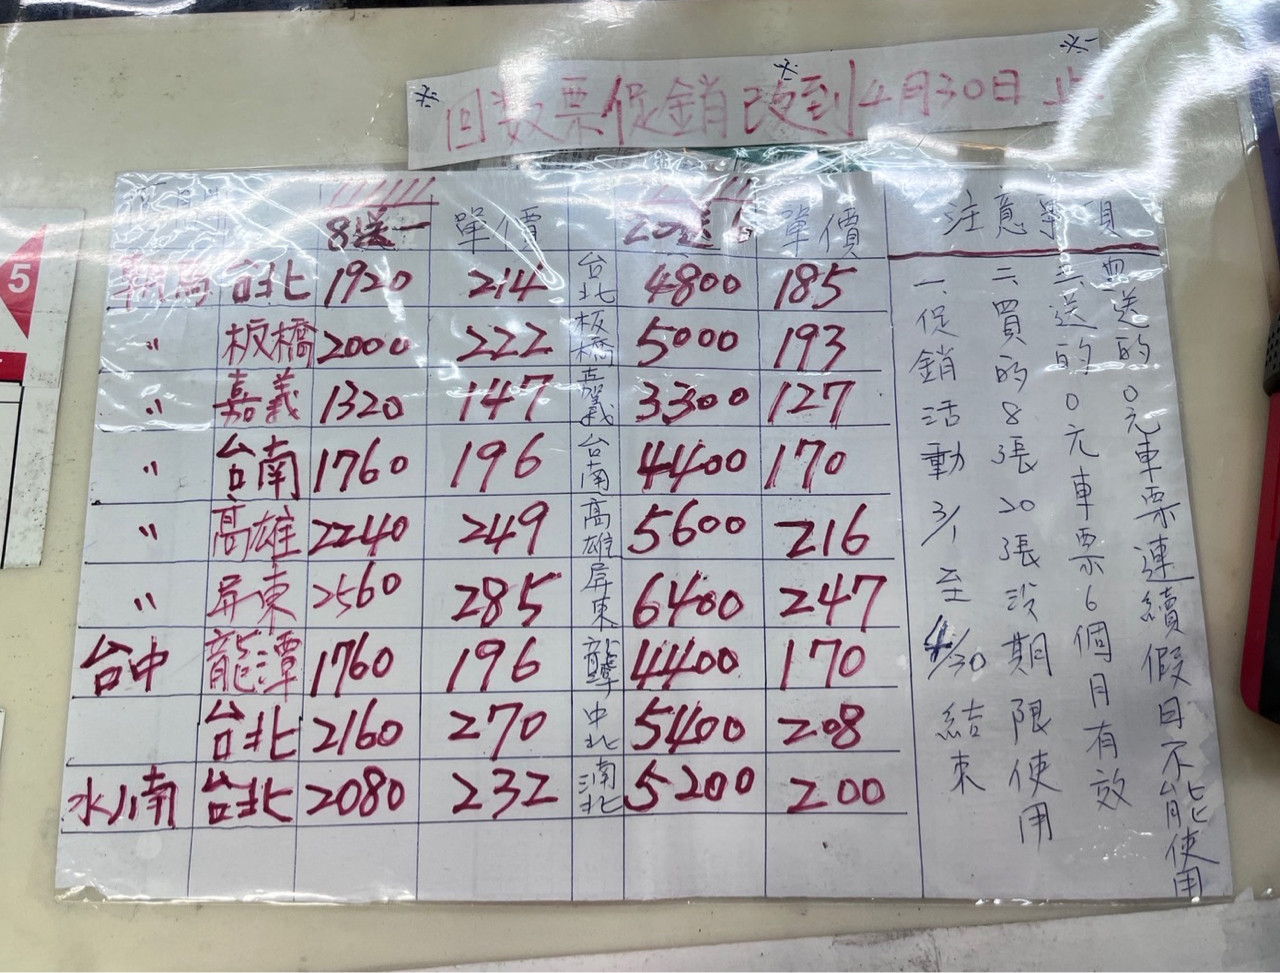 回数票促銷改到4月30日止
8送一 單價 20送6 單價
朝馬 台北 1920 214 台北 4800 185
〃 板橋 2000 222 板橋 5000 193
〃 嘉義 1320 147 嘉義 3300 127
〃 台南 1760 196 台南 4400 170
〃 高雄 2240 249 高雄 5600 216
〃 屏東 2560 285 屏東 6400 247
台中 龍潭 1760 196 龍潭 4400 170
台北 2160 270 中北 5400 208
水湳 台北 2080 232 湳北 5200 200
注意事項
一、促銷活動3/1至4/30結束
二、買的8張20張沒期限使用
三、送的0元車票6個月有效
四、送的0元車票連續假日不能使用
5